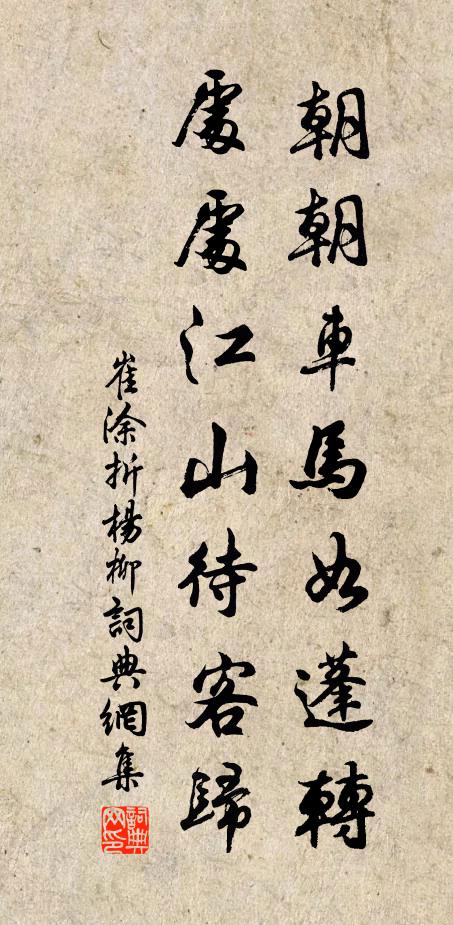 朝朝車馬如蓬轉
處處江山待客歸
崔涂折楊柳詞典網集
詞典網印